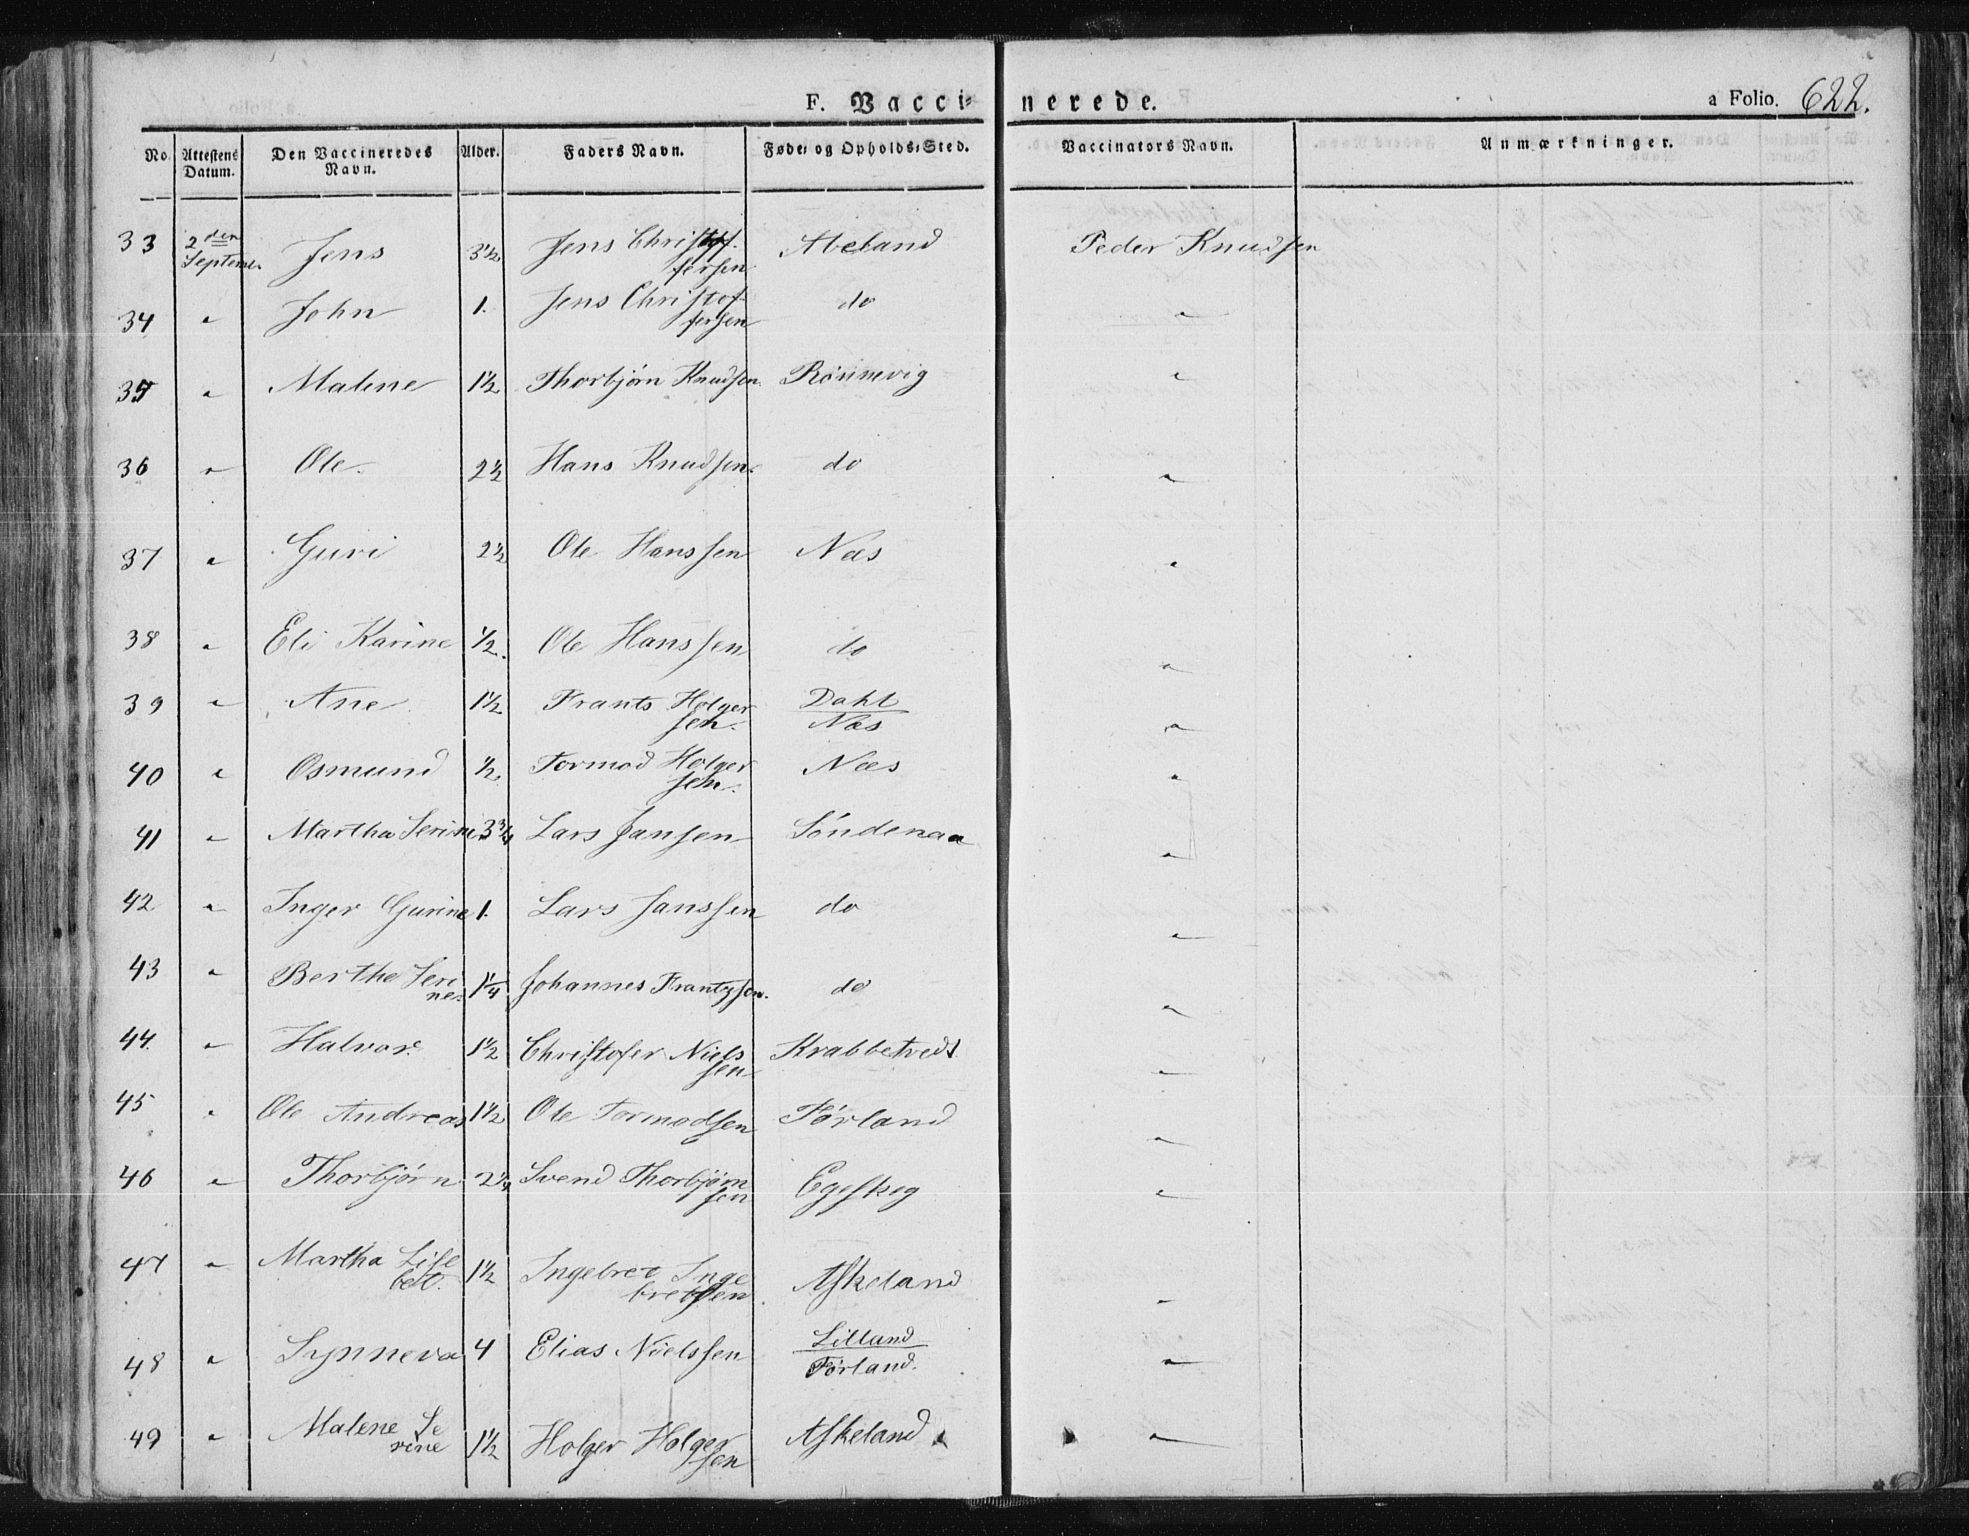 F. Vacci- nerede. a Folio. 622.
No. Attestens Datum. Den Vaccineredes Navn. Alder. Faders Navn. Føde- og Opholds-Sted. Vaccinators Navn. Anmærkninger.
33 2den September Jens 3½ Jens Christoffersen Abeland Peder Knudsen
34 " John 1. Jens Christoffersen do "
35 " Malene 1½ Thorbjørn Knudsen Rönnevig "
36 " Ole 2½ Hans Knudsen do "
37 " Guri 2½ Ole Hanssen Næs "
38 " Eli Karine ½. Ole Hanssen do "
39 " Ane 1½ Frants Holgersen. Dahl Næs "
40 " Osmund ½. Tormod Holgersen. Næs "
41 " Martha Serine 3¾ Lars Jansen Söndenaa "
42 " Inger Gurine 1. Lars Janssen do "
43 " Berthe Serine 1¼ Johannes Frantzsen. do "
44. " Halvor 1½ Christofer Nielssen Krabbetvedt "
45 " Ole Andreas 1½ Ole Tormodsen Førland "
46 " Thorbjörn 2¼ Svend Thorbjørnsen Egeskog "
47 " Martha Lisebet. 1½ Ingebret Ingebretsen Askeland "
48 " Synneva 4 Elias Nielssen Lilland Førland. "
49 " Malene Serine 1½ Holger Holgersen Askeland "